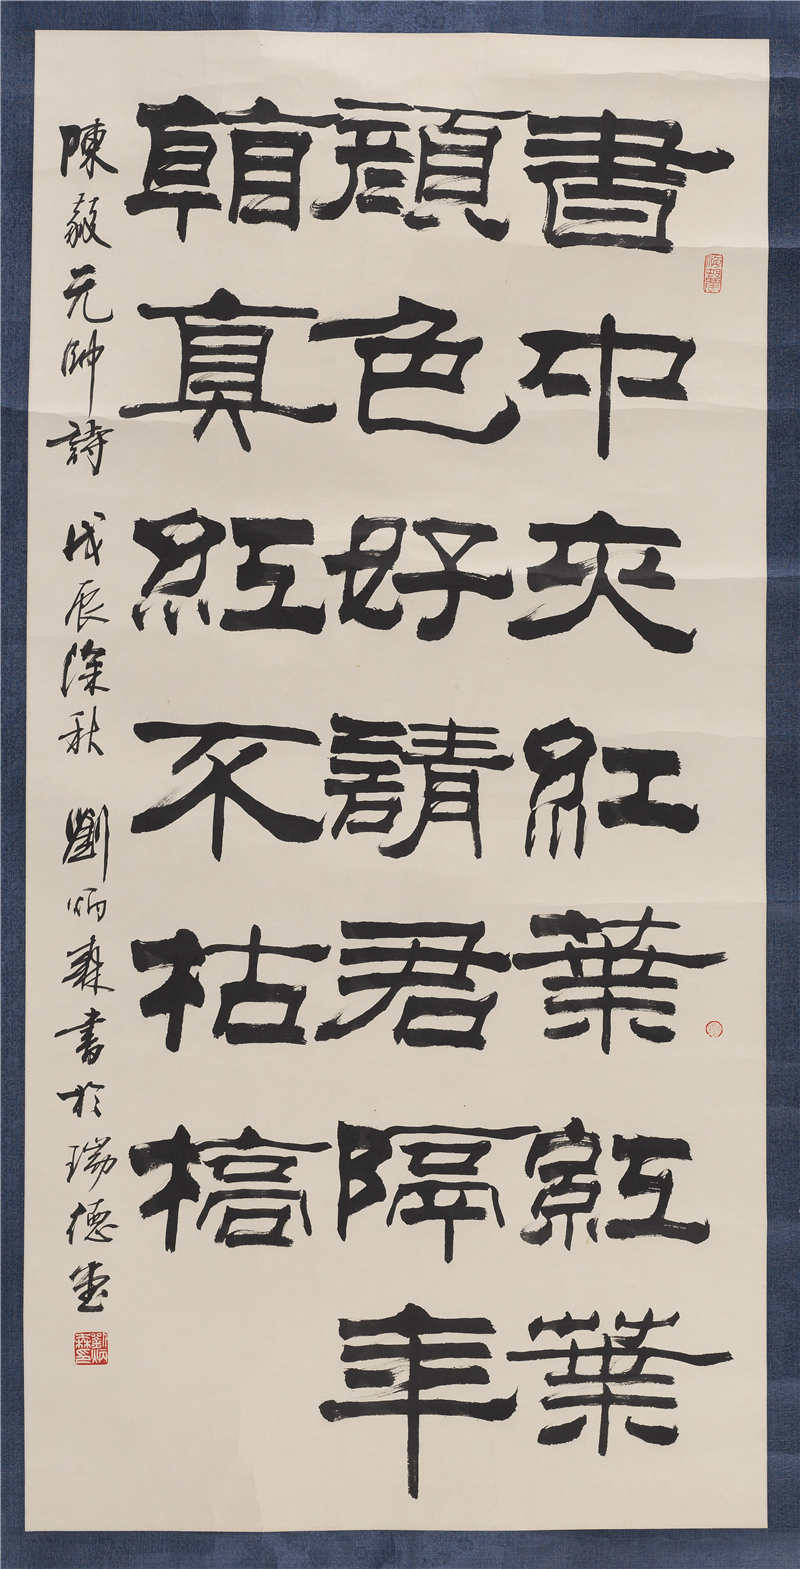 書中夾紅葉紅葉
顏色好請君隔年
看真紅不枯槁
陳毅元帥詩 戊辰深秋 劉炳森書於瑞德堂
劉炳森印